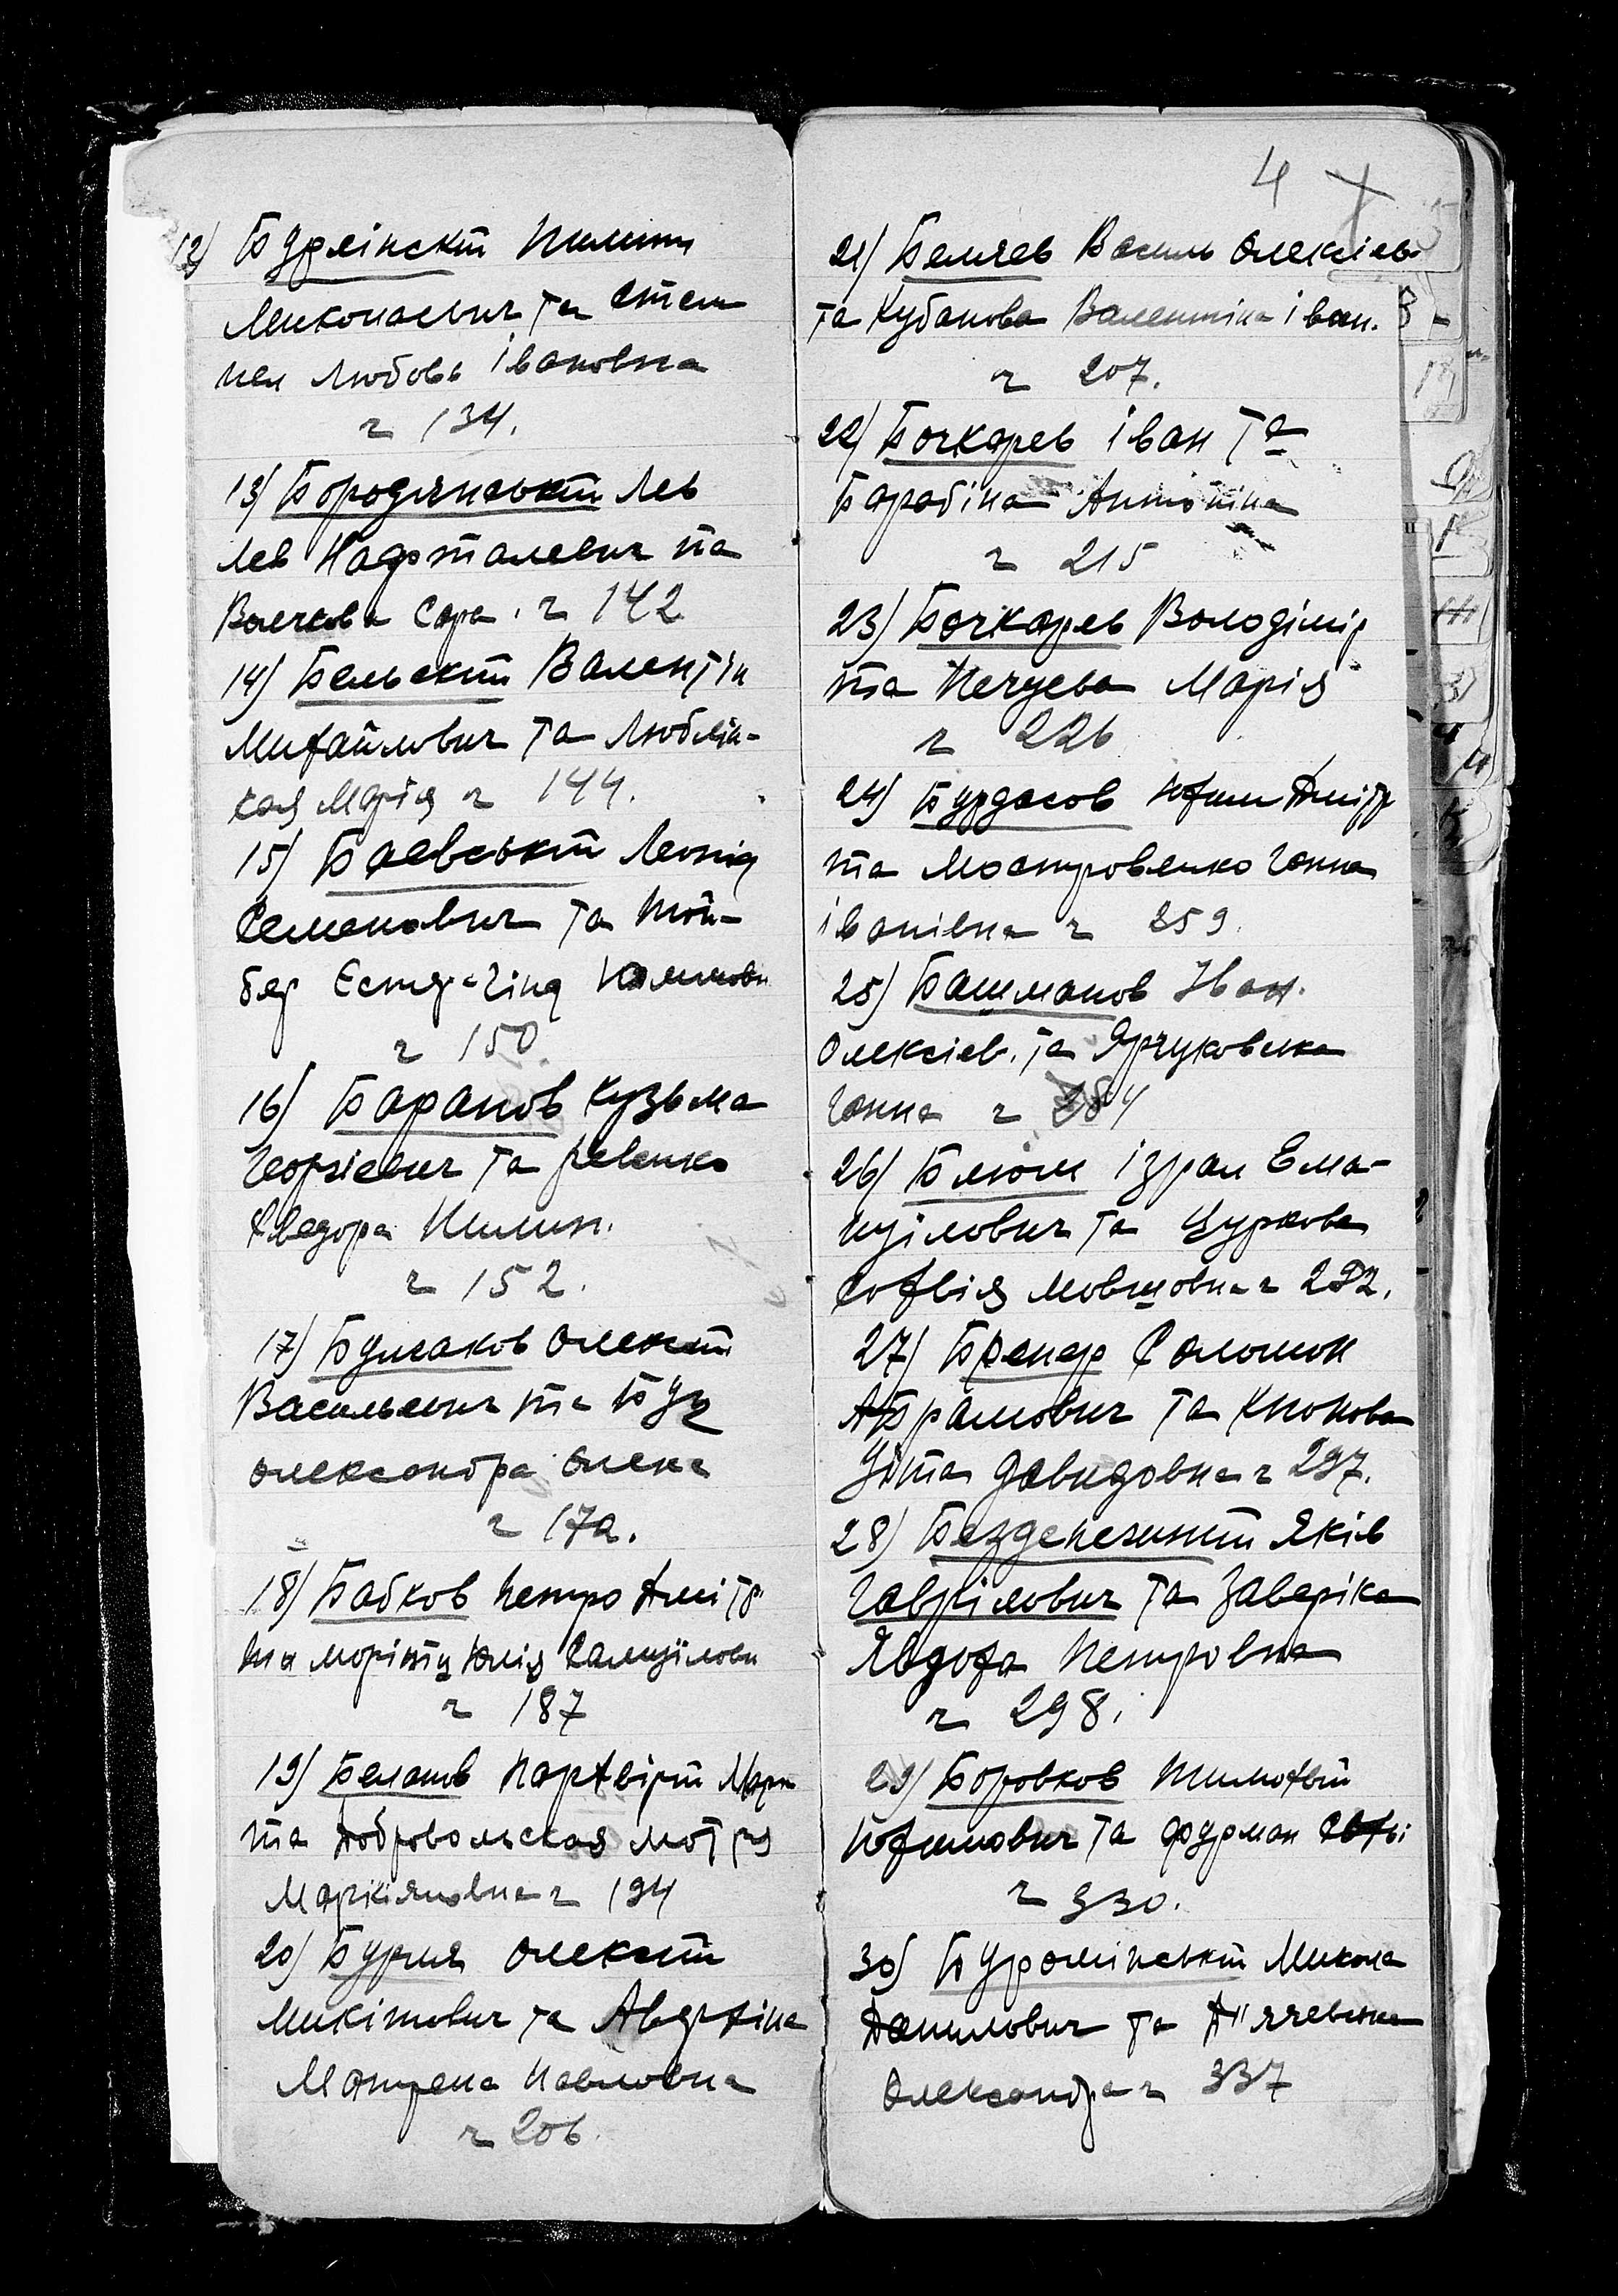 12) Бурлінский Пилип
Миколаевич та Стем
Любовь Івановна
ч 134.
13) Бородянський Лев
Лев Нафталевич та
Волчкова Сара. ч 142
14) Бельский Валентін
Михайлович та Люблін-
кая Марія ч 144.
15) Баевський Леонід
Семенович та Той-
бер Естер-Гінд
ч 150
16) Баранов Кузьма
Георгіевич та Ревенко
Хведора Пилип.
ч 152.
17) Булгаков Олексій
Васильевич та Буц
Олександра Олек
ч 172.
18) Бабков Петро Дмітр
та Морітц Юлія Самуілови
ч 187
19) Беланов Парфвірій Марк
та Добровольская Мотря
Маркіяновна ч 194
20) Бурля Олексій
Микітович та
Мотрена Павловна
ч 206.
4
21) Беляев Василь Олексіев
та Кубанова Валентіна Іван.
ч 207.
22) Бочкарев Іван та
Барабіна Антоніна
ч 215
23) Бочкарев Володімір
та Печуева Марія
ч 226
24) Бурдасов Юхим Дмітр
та Мостровенко Ганна
Іванівна ч 259.
25) Башманов Іван.
Олексіев. та Ярчуковска
Ганна ч 284
26) Блюм Ізраіл Ема-
нуілович та Цуркова
Софвія Мовшовна ч 292.
27) Бренер Соломон
Абрамович та Кнопова
Уіта Давидовна ч 297.
28) Безденежний Яків
Гаврілович та Заверіка
Явдоха Петровна
ч 298.
29) Боровков Тимофвій
Юфимович та Фурман
ч 330.
30) Буромінський Микола
Данилович та Д'яячевска
Олександра ч 337